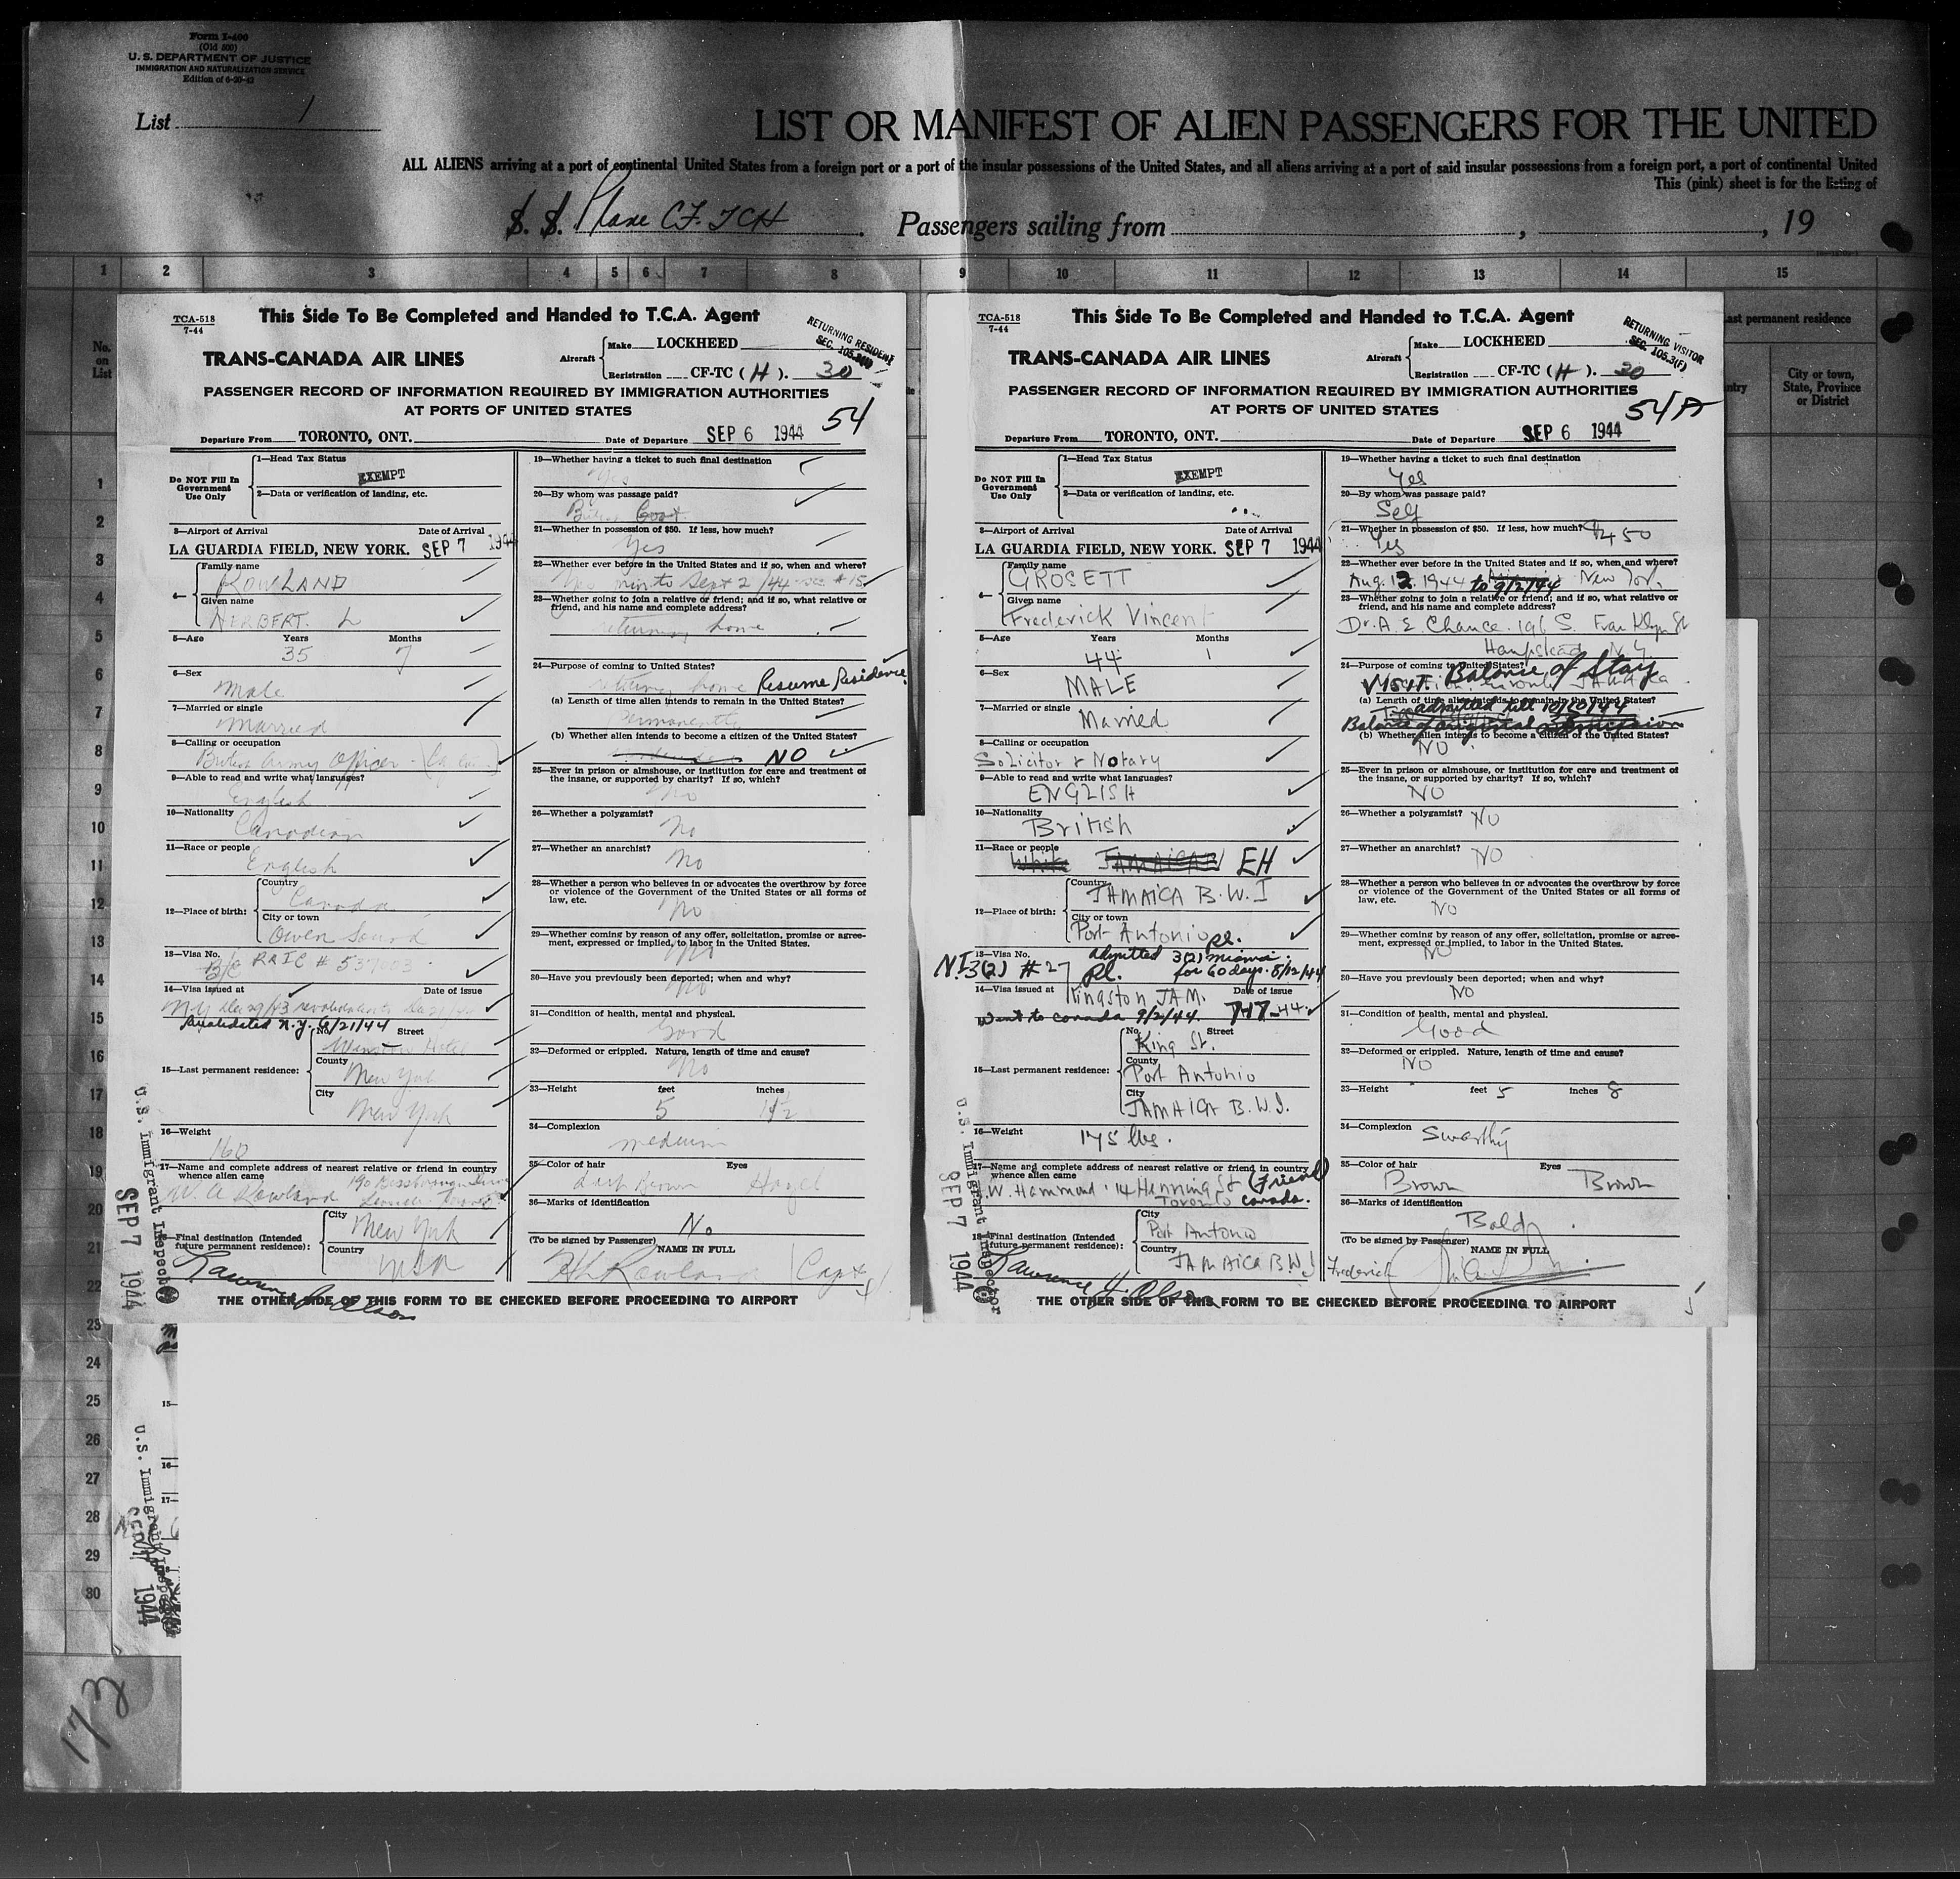 Form I-400
(Old 500)
U. S. DEPARTMENT OF JUSTICE
IMMIGRATION AND NATURALIZATION SERVICE
Edition of 6-20-42
List 1
LIST OR MANIFEST OF ALIEN PASSENGERS FOR THE UNITED
ALL ALIENS arriving at a port of continental United States from a foreign port or a port of the insular possessions of the United States, and all aliens arriving at a port of said insular possessions from a foreign port, a port of continental United
This (pink) sheet is for the listing of
S. S. Plane CF. TCH. Passengers sailing from , , 19
1 2 3 4 5 6 7 8 9 10 11 12 13 14 15
No. on List
This Side To Be Completed and Handed to T.C.A. Agent
TCA-518
7-44
RETURNING RESIDENT
TRANS-CANADA AIR LINES
Aircraft
Make LOCKHEED
Registration CF-TC (H). 30
PASSENGER RECORD OF INFORMATION REQUIRED BY IMMIGRATION AUTHORITIES
AT PORTS OF UNITED STATES
54
Departure From TORONTO, ONT. Date of Departure SEP 6 1944
Do NOT Fill In
Government
Use Only
1—Head Tax Status
EXEMPT
2—Data or verification of landing, etc.
3—Airport of Arrival Date of Arrival
LA GUARDIA FIELD, NEW YORK. SEP 7 1944
4—
Family name
ROWLAND
Given name
HERBERT. L
5—Age Years Months
35 7
6—Sex
Male
7—Married or single
Married
8—Calling or occupation
British Army Officer
9—Able to read and write what languages?
English
10—Nationality
Canadian
11—Race or people
English
12—Place of birth:
Country
Canada
City or town
Owen Sound
13—Visa No.
B/C RAIC # 537003
14—Visa issued at Date of issue
N.Y. 6/21/44
15—Last permanent residence:
No. Street
Winston Hotel
County
New York
City
New York
16—Weight
160
17—Name and complete address of nearest relative or friend in country
whence alien came
W. A Rowland
18—Final destination (Intended
future permanent residence):
City
New York
Country
USA
19—Whether having a ticket to such final destination
Yes
20—By whom was passage paid?
British Govt
21—Whether in possession of $50. If less, how much?
Yes
22—Whether ever before in the United States and if so, when and where?
to Sept 2/44 see #15
23—Whether going to join a relative or friend; and if so, what relative or
friend, and his name and complete address?
returning home
24—Purpose of coming to United States?
returning home Resume Residence
(a) Length of time alien intends to remain in the United States?
Permanently
(b) Whether alien intends to become a citizen of the United States?
NO
25—Ever in prison or almshouse, or institution for care and treatment of
the insane, or supported by charity? If so, which?
No
26—Whether a polygamist?
No
27—Whether an anarchist?
No
28—Whether a person who believes in or advocates the overthrow by force
or violence of the Government of the United States or all forms of
law, etc.
No
29—Whether coming by reason of any offer, solicitation, promise or agree-
ment, expressed or implied, to labor in the United States.
No
30—Have you previously been deported; when and why?
No
31—Condition of health, mental and physical.
Good
32—Deformed or crippled. Nature, length of time and cause?
No
33—Height feet inches
5
34—Complexion
medium
35—Color of hair Eyes
dark Brown Hazel
36—Marks of identification
No
(To be signed by Passenger) NAME IN FULL
H L Rowland Capt
THE OTHER SIDE OF THIS FORM TO BE CHECKED BEFORE PROCEEDING TO AIRPORT
U.S. Immigrant Inspector
SEP 7 1944
This Side To Be Completed and Handed to T.C.A. Agent
TCA-518
7-44
RETURNING VISITOR
SEC. 105.3(F)
TRANS-CANADA AIR LINES
Aircraft
Make LOCKHEED
Registration CF-TC (H). 30
PASSENGER RECORD OF INFORMATION REQUIRED BY IMMIGRATION AUTHORITIES
AT PORTS OF UNITED STATES
54A
Departure From TORONTO, ONT. Date of Departure SEP 6 1944
Do NOT Fill In
Government
Use Only
1—Head Tax Status
EXEMPT
2—Data or verification of landing, etc.
3—Airport of Arrival Date of Arrival
LA GUARDIA FIELD, NEW YORK. SEP 7 1944
4—
Family name
GROSETT
Given name
Frederick Vincent
5—Age Years Months
44 1
6—Sex
MALE
7—Married or single
Married
8—Calling or occupation
Solicitor & Notary
9—Able to read and write what languages?
ENGLISH
10—Nationality
British
11—Race or people
White JAMAICAN EH
12—Place of birth:
Country
JAMAICA B.W.I
City or town
Port Antonio
13—Visa No. admitted 3(2) miami
N.I. 3(2) #27 for 60 days. 8/12/44
14—Visa issued at Kingston JAM. Date of issue
Went to Canada 9/2/44. 7-17-44
15—Last permanent residence:
No. Street
King St.
County
Port Antonio
City
JAMAICA B.W.I.
16—Weight 175 lbs.
17—Name and complete address of nearest relative or friend in country
whence alien came (Friend)
W. Hammond. 14 Hunning St
Toronto Canada.
18—Final destination (Intended
future permanent residence):
City
Port Antonio
Country
JAMAICA B.W.I
19—Whether having a ticket to such final destination
Yes
20—By whom was passage paid?
Self
21—Whether in possession of $50. If less, how much? $450
Yes
22—Whether ever before in the United States and if so, when and where?
Aug. 12 1944 to 9/2/44 New York
23—Whether going to join a relative or friend; and if so, what relative or
friend, and his name and complete address?
Dr. A. E. Chance. 196 S. Franklyn St
Hampstead N.Y.
24—Purpose of coming to United States? Balance of Stay
Visit.
(a) Length of time alien intends to remain in the United States?
admitted till 10/10/44
Balance of original admission
(b) Whether alien intends to become a citizen of the United States?
NO
25—Ever in prison or almshouse, or institution for care and treatment of
the insane, or supported by charity? If so, which?
NO
26—Whether a polygamist? NO
27—Whether an anarchist? NO
28—Whether a person who believes in or advocates the overthrow by force
or violence of the Government of the United States or all forms of
law, etc.
NO
29—Whether coming by reason of any offer, solicitation, promise or agree-
ment, expressed or implied, to labor in the United States.
NO
30—Have you previously been deported; when and why?
NO
31—Condition of health, mental and physical.
Good
32—Deformed or crippled. Nature, length of time and cause?
NO
33—Height feet 5 inches 8
34—Complexion Swarthy
35—Color of hair Eyes
Brown Brown
36—Marks of identification
Bald
(To be signed by Passenger) NAME IN FULL
Frederick
Lawrence H. Olson
THE OTHER SIDE OF THIS FORM TO BE CHECKED BEFORE PROCEEDING TO AIRPORT
U.S. Immigrant Inspector
SEP 7 1944
last permanent residence
City or town,
State, Province
or District
1
2
3
4
5
6
7
8
9
10
11
12
13
14
15
16
17
18
19
20
21
22
23
24
25
26
27
28
29
30
15—
16—
17—
U.S. Immigrant Inspector
SEP 7 1944
173